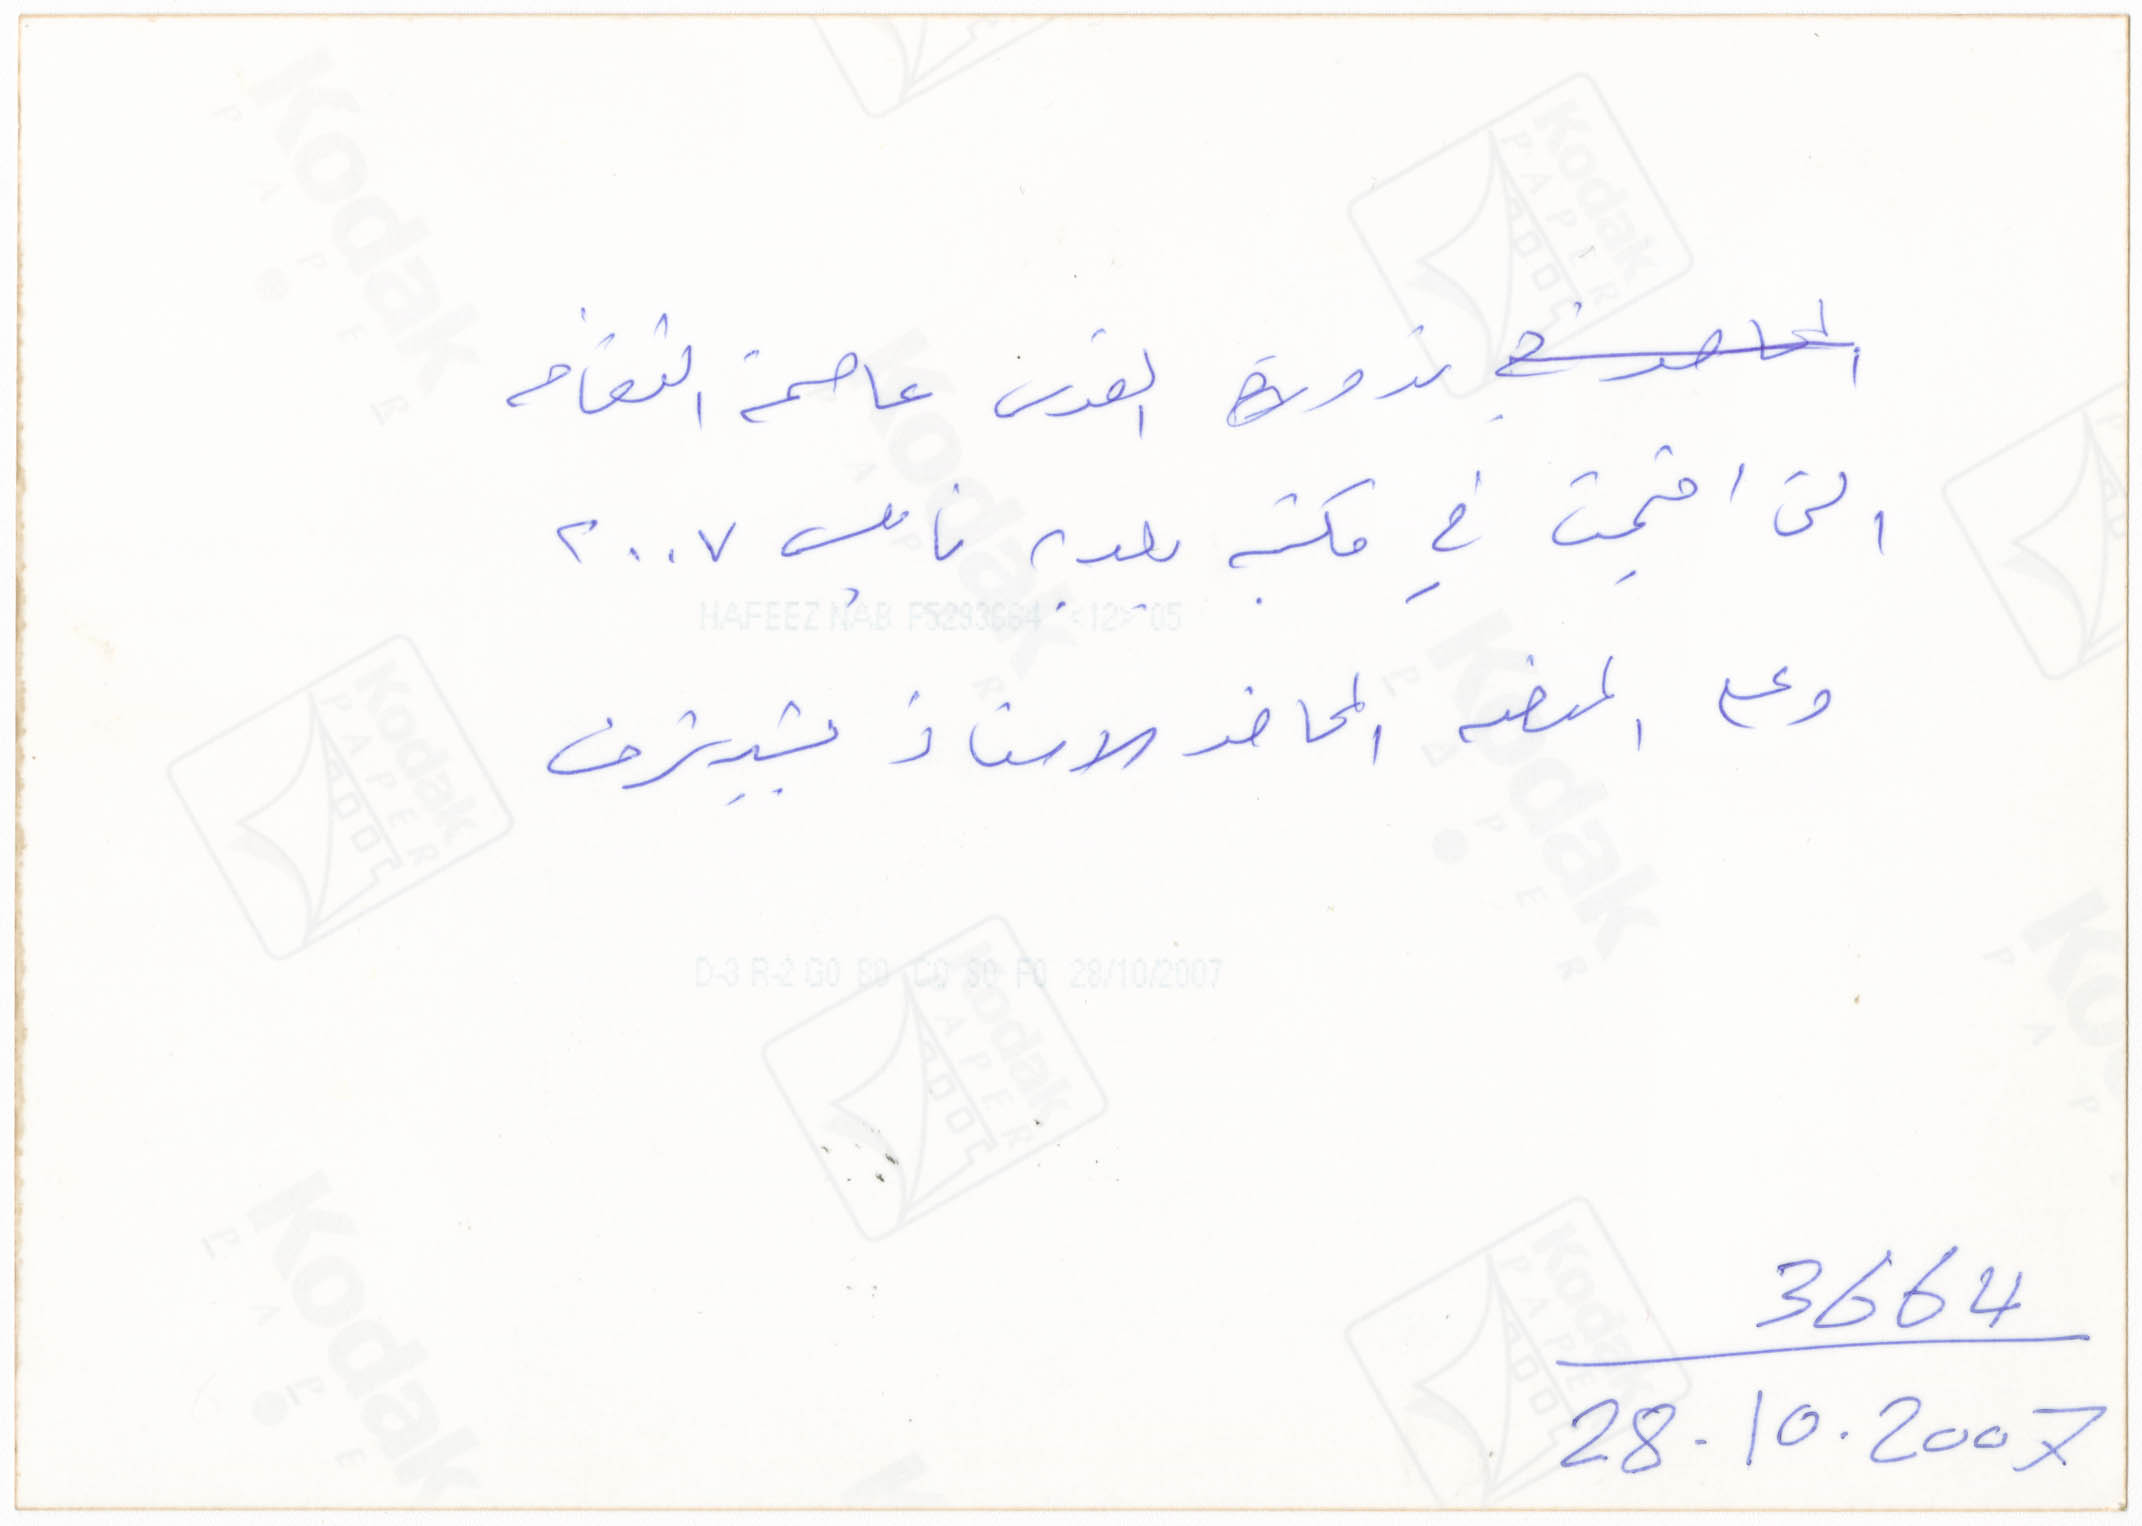 المحاضر في ندوة القدس عاصمة الثقافه
التي اقيمت في مكتبه بلدية نابلس ٢٠٠٧
وعلى المنصه المحاضر الاستاذ بشير شرف
HAFEEZ NAB F5293684 <12> 05
D-3 R-2 G0 B0 C0 S0 F0 28/10/2007
3664
28-10.2007
Kodak
PAPER